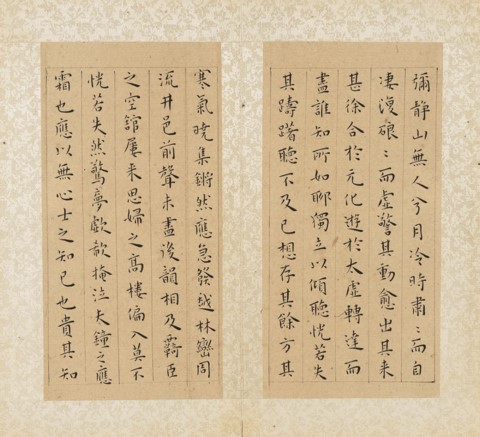 彌靜山無人兮月冷時肅〻而自
凄復硠〻而虛警其動愈出其来
甚徐合於元化遊於太虛轉達而
盡誰知所如聊獨立以傾聽恍若失
其躊躇聽不及已想存其餘方其
寒氣曉集鏘然應急發越林巒周
流井邑前聲未盡後韻相及覊臣
之空舘屢来思婦之高樓偏入莫不
恍若失然驚夢歔欷掩泣夫鐘之應
霜也應以無心士之知已也貴其知